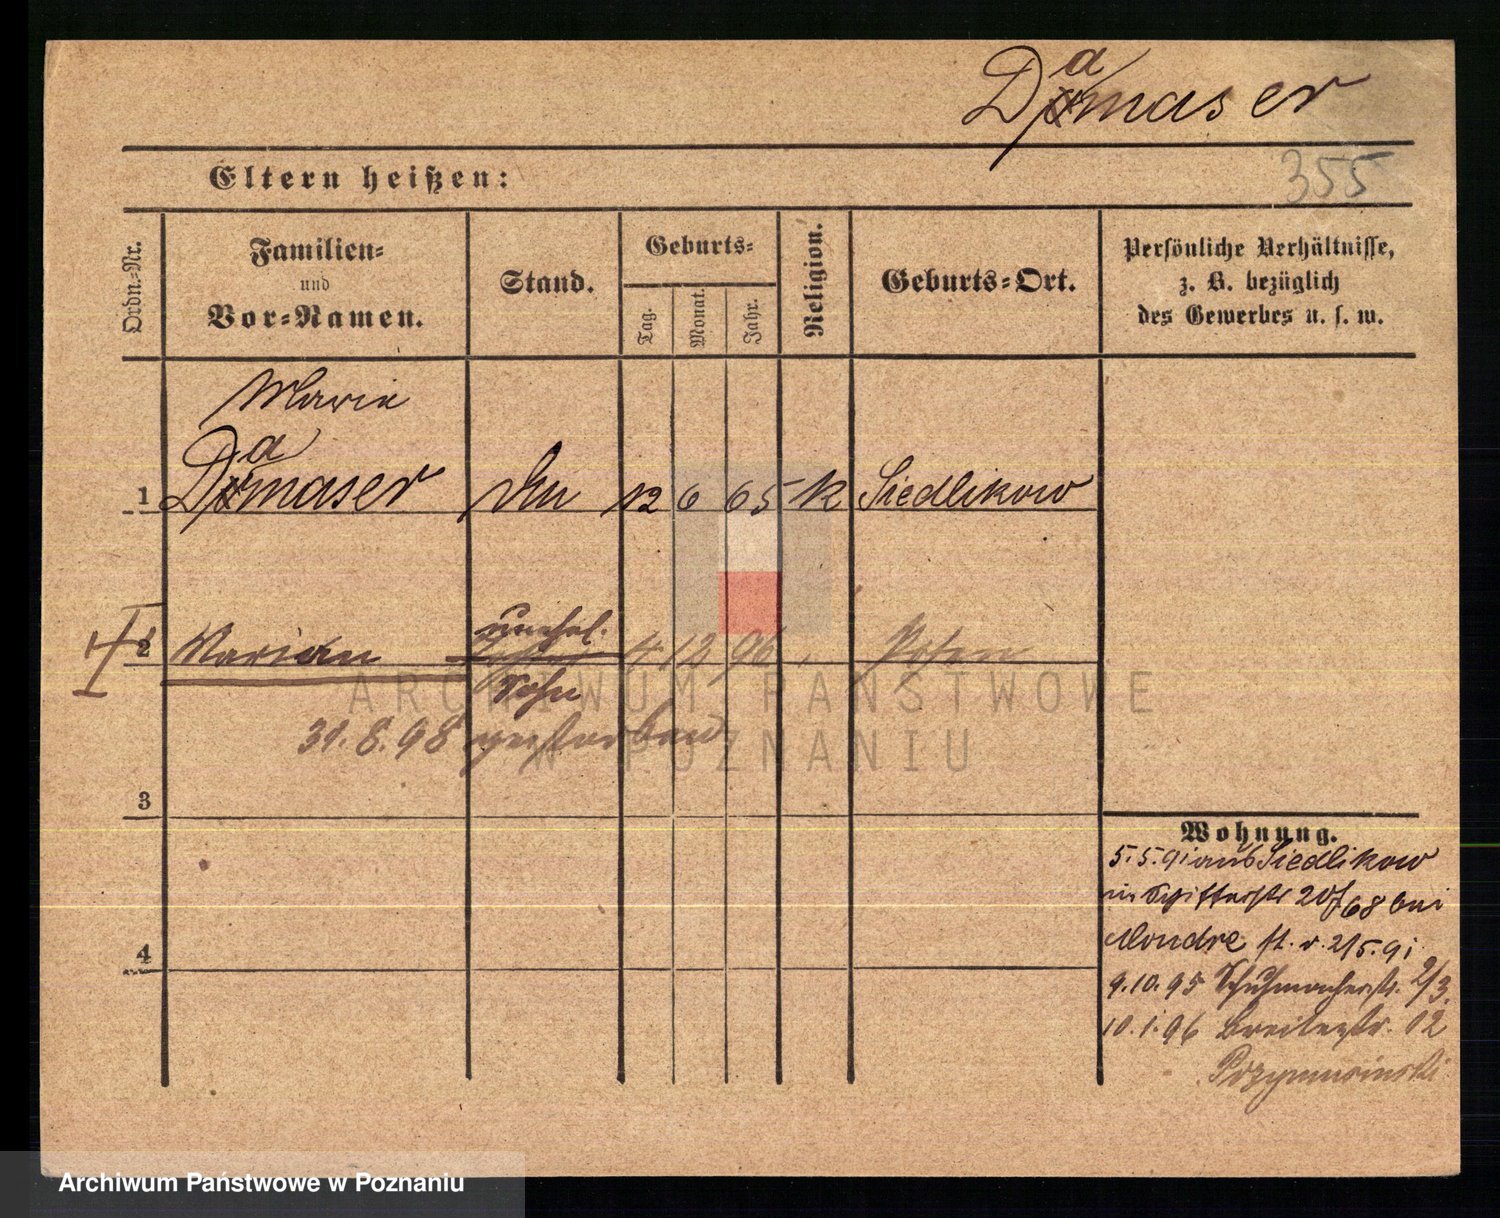 Damaser
355
Eltern heißen:
Ordn.-Nr.
Familien-
und
Vor-Namen.
Stand.
Geburts-
Tag.
Monat.
Jahr.
Religion.
Geburts-Ort.
Persönliche Verhältnisse,
z. B. bezüglich
des Gewerbes u. s. w.
Marie
1 Damaser 12 6 65 K Siedlikow
unehel.
2 Marian 4 12 96 Posen
Sohn
31.8.98 gestorben
3
4
Wohnung.
5.5.91 aus Siedlikow
in Schifferstr 20 68 bei
Mondre 2/5.91
9.10.95 Schuhmacherstr. 2/3.
10.1.96 Breitestr. 12
ARCHIWUM PAŃSTWOWE
W POZNANIU
Archiwum Państwowe w Poznaniu